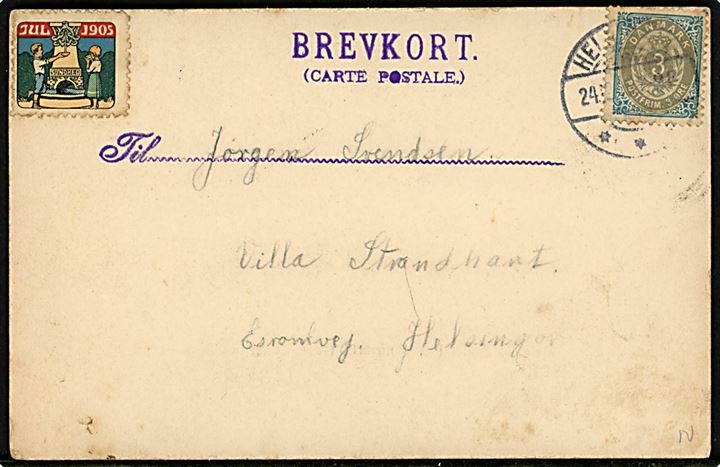 JUL 1905
SUNDHED
BREVKORT.
(CARTE POSTALE.)
DANMARK
3
POSTFRIM. 3 ØRE
HELS
24.
Til Jörgen Svendsen
Villa Strandhant.
Esromvej. Helsingör
N